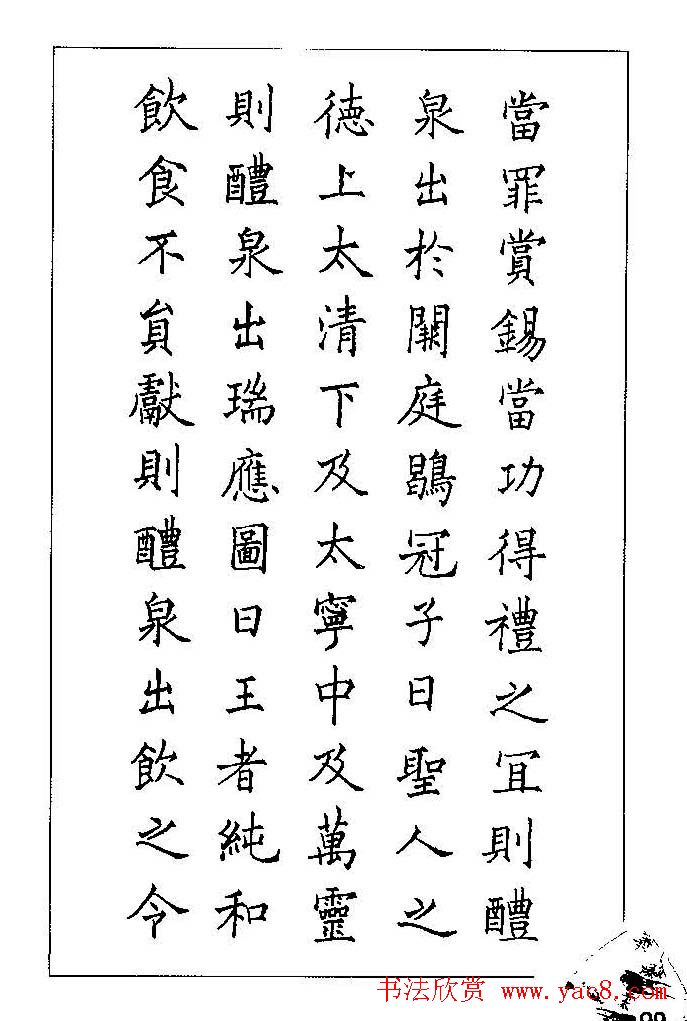 當罪賞錫當功得禮之冝則醴
泉出於闕庭鶡冠子曰聖人之
德上太清下及太寧中及萬靈
則醴泉出瑞應圖曰王者純和
飲食不貟獻則醴泉出飲之令
书法欣赏 www.yac8.com